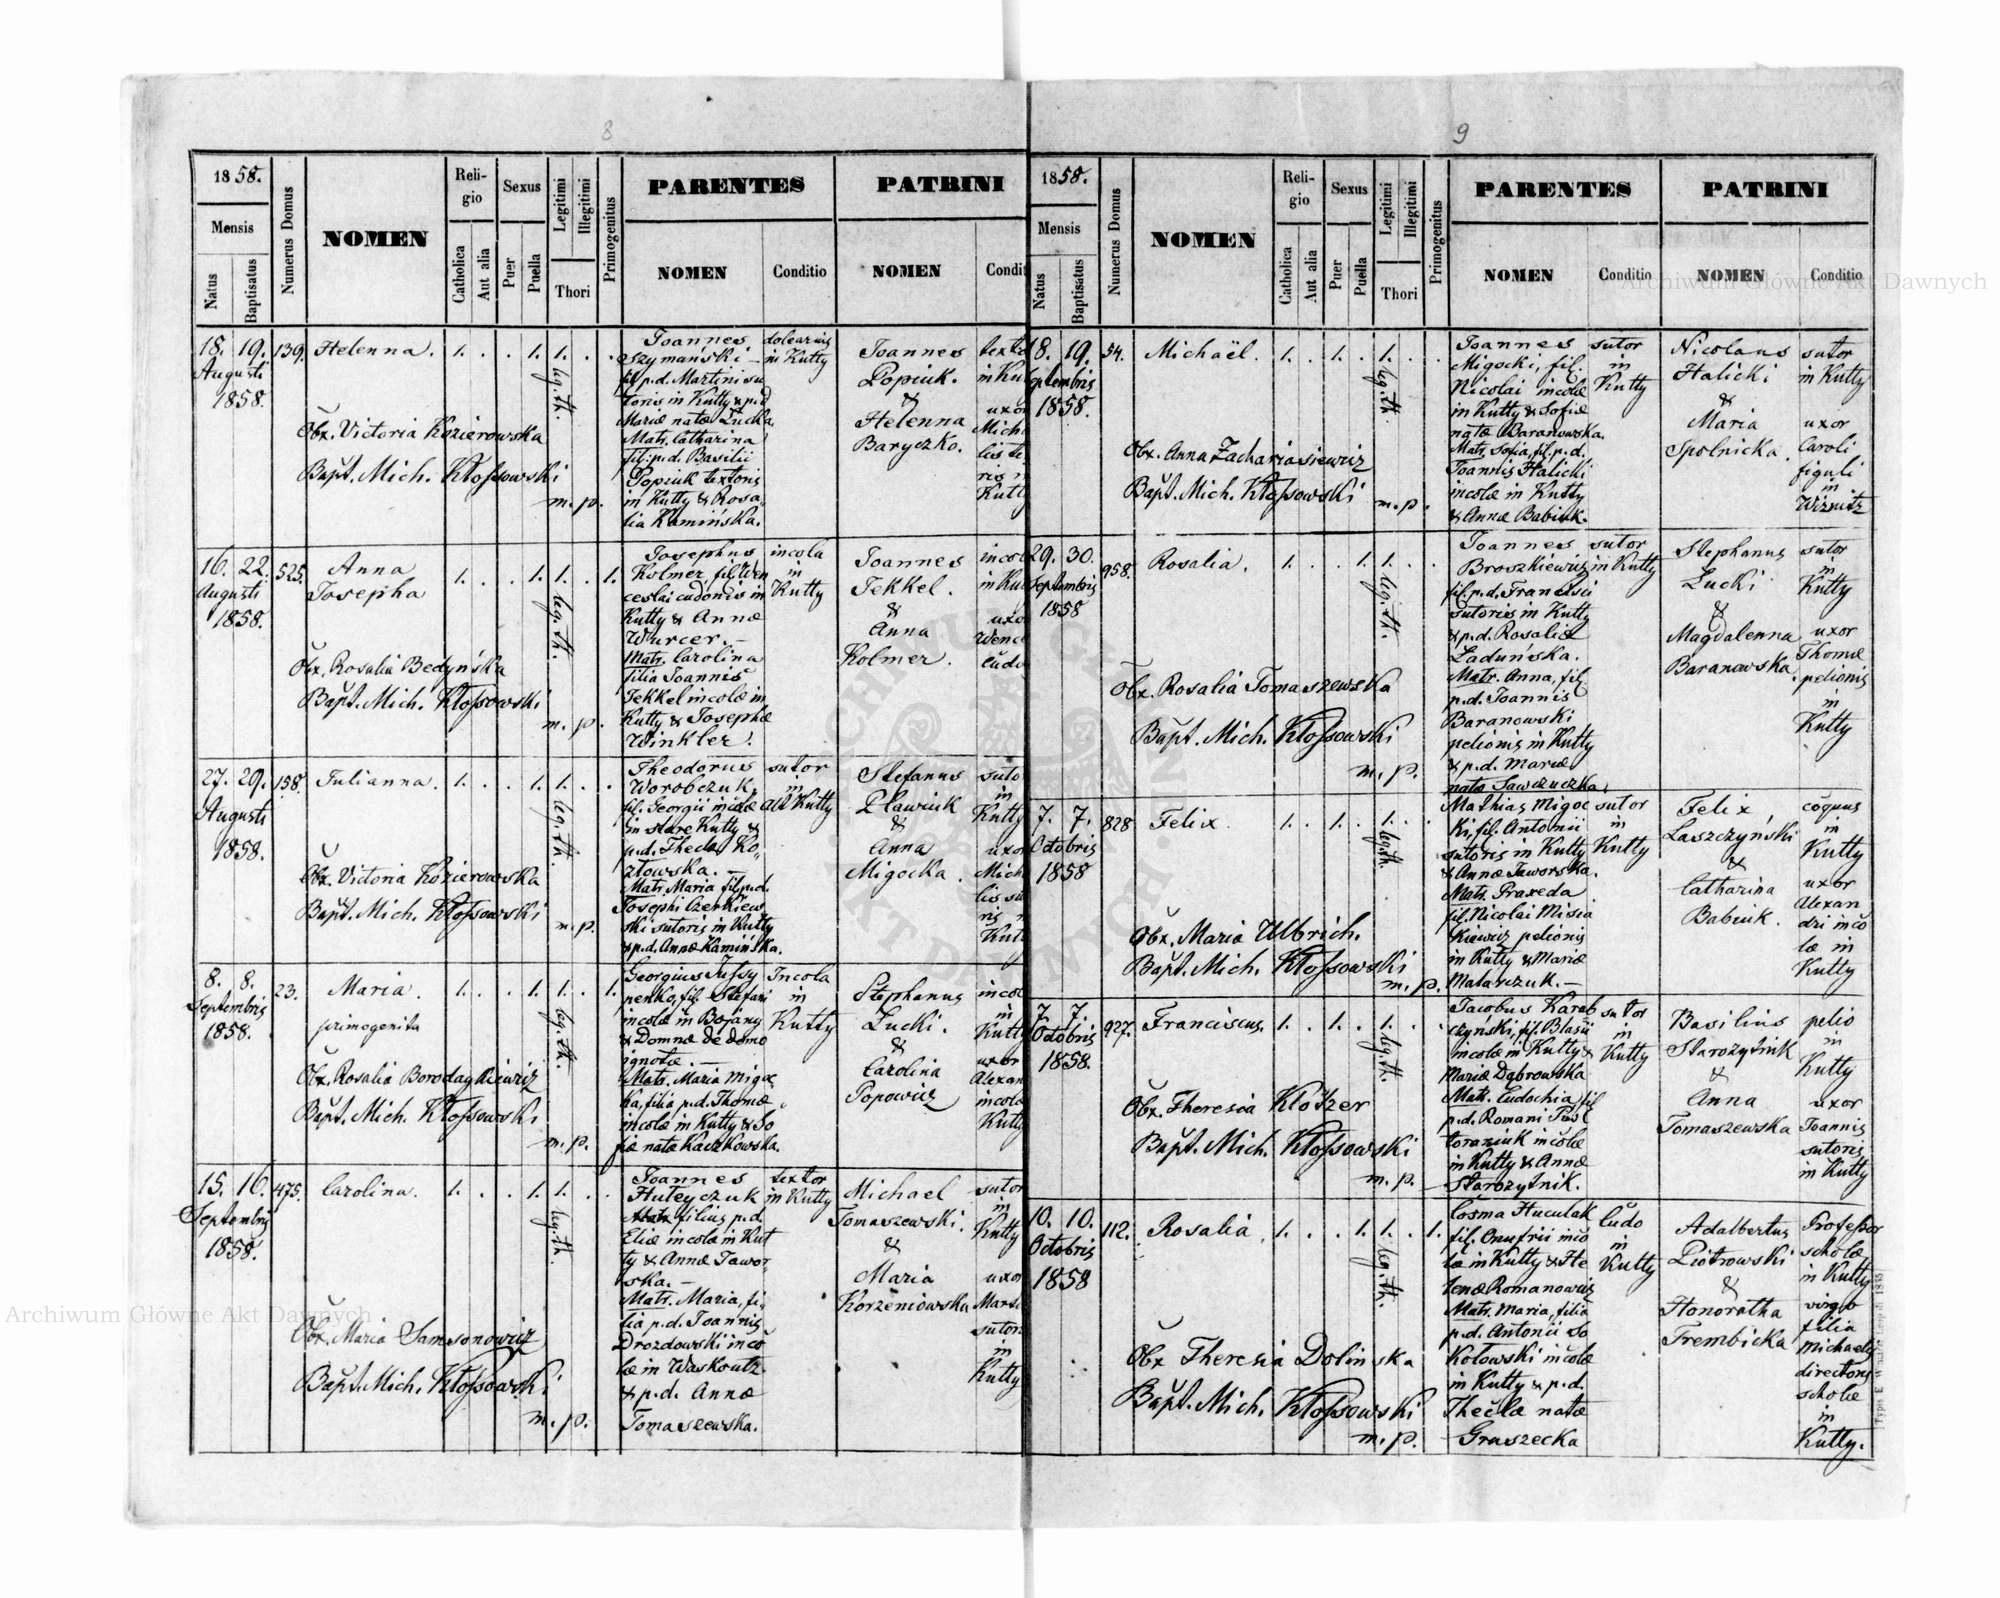 8
1858.
Mensis
Natus
Baptisatus
Numerus Domus
NOMEN
Reli-
gio
Catholica
Aut alia
Sexus
Puer
Puella
Legitimi
Illegitimi
Thori
Primogenitus
PARENTES
NOMEN
Conditio
PATRINI
NOMEN
Condit
18. 19.
Augusti
1858.
139.
Helenna.
1. . . 1. 1. . .
leg. th.
Obx. Victoria Kozierowska
Bapt. Mich. Kłossowski
m. p.
Joannes
Szymański —
fil. p.d. Martini su
toris in Kutty & p.d
Mariæ natæ Łucka,
Matr. Catharina
fil: p.d. Basilii
Popiuk textoris
in Kutty & Rosa-
lia Kamińska.
dolearius
in Kutty
Joannes
Popiuk.
&
Helenna
Baryczko.
texto
in Kut
uxor
Mich
lis te
ris
Kutt
16. 22.
Augusti
1858.
525.
Anna
Josepha
1. . . 1. 1. . 1.
leg. th.
Obx. Rosalia Bedyńska
Bapt. Mich. Kłossowski
m. p.
Josephus
Kolmer, fil. Wen
ceslai cudonis in
Kutty & Annæ
Wurcer. —
Matr. Carolina
filia Joannis
Jekkel incolæ in
Kutty & Josephæ
Winkler.
incola
in
Kutty
Joannes
Jekkel.
&
Anna
Kolmer.
incol
in Kut
uxo
Wenc
cudo
27. 29.
Augusti
1858.
158.
Julianna.
1. . . 1. 1. . .
leg. th.
Obx. Victoria Kozierowska
Bapt. Mich. Kłossowski
m. p.
Theodorus
Worobczuk,
fil. Georgii incolæ
in stare Kutty &
p.d. Theclæ Ko-
złowska. —
Matr. Maria fil. p.d.
Josephi Czerkiew
ski sutoris in Kutty
& p.d. Annæ Kamińska.
sutor
in
Kutty
Stefanus
Pławiuk
&
Anna
Migocka.
suto
in
Kutty
uxor
Mich
lis su
ris
Kutt
8. 8.
Septembris
1858.
23.
Maria.
primogenita
1. . . 1. 1. . 1.
leg. th.
Obx. Rosalia Borodaykiewicz
Bapt. Mich. Kłossowski
m. p.
Georgius Jussy
penko, fil. Stefani
incolæ in Bojany
& Domnæ de domo
ignotæ. —
Matr. Maria Migoc
ka, filia p.d. Thomæ
incolæ in Kutty & So
fiæ natæ Kaczkowska.
Incola
in
Kutty
Stephanus
Łucki.
&
Carolina
Popowicz
incol
in
Kutt
uxor
Alexan
incolæ
Kutty
15. 16.
Septembris
1858.
475.
Carolina.
1. . . 1. 1. . .
leg. th.
Obx. Maria Samsonowicz
Bapt. Mich. Kłossowski
m. p.
Joannes
Huleyczuk
filius p.d.
Eliæ incolæ in Kut
ty & Annæ Jawor-
ska. —
Matr. Maria, fi-
lia p.d. Joannis
Drozdowski inco
læ in Waskoutz
& p.d. Annæ
Tomaszewska.
textor
in Kutty
Michael
Tomaszewski.
&
Maria
Korzeniowska
sutor
in
Kutty
uxor
Marti
sutoris
in
Kutty
9
1858.
Mensis
Natus
Baptisatus
Numerus Domus
NOMEN
Reli-
gio
Catholica
Aut alia
Sexus
Puer
Puella
Legitimi
Illegitimi
Thori
Primogenitus
PARENTES
NOMEN
Conditio
PATRINI
NOMEN
Conditio
18. 19.
ptembris
1858.
54.
Michaël.
1. . 1. . 1. . .
leg. th.
Obx. Anna Zachariasiewicz
Bapt. Mich. Kłossowski
m. p.
Joannes
Migocki, fil.
Nicolai incolæ
in Kutty & Sofiæ
natæ Baranowska.
Matr. Sofia, fil. p.d.
Joannis Halicki
incolæ in Kutty
& Annæ Babiuk.
sutor
in
Kutty
Nicolaus
Halicki
&
Maria
Spolnicka.
sutor
in Kutty
uxor
Caroli
figuli
in
Wiznitz
29. 30.
Septembris
1858
958.
Rosalia.
1. . . 1. 1. . .
leg. th.
Obx. Rosalia Tomaszewska
Bapt. Mich. Kłossowski
m. p.
Joannes
Broszkiewicz
fil. p.d. Francisci
sutoris in Kutty
& p.d. Rosaliæ
Ładuńska.
Matr. Anna, fil.
p.d. Joannis
Baranowski
pelionis in Kutty
& p.d. Mariæ
natæ Sawczuczka.
sutor
in Kutty
Stephanus
Łucki
&
Magdalenna
Baranowska.
sutor
in
Kutty
uxor
Thomæ
pelionis
in
Kutty
7. 7.
Octobris
1858
828
Felix.
1. . 1. . 1. . .
leg. th.
Obx. Maria Ulbrich.
Bapt. Mich. Kłossowski
m. p.
Mathias Migoc
ki, fil. Antonii
sutoris in Kutty
& Annæ Jaworska.
Matr. Praxeda
fil. Nicolai Misia
kiewicz pelionis
in Kutty & Mariæ
Matarczuk. —
sutor
in
Kutty
Felix
Laszczyński
&
Catharina
Babiuk.
coquus
in
Kutty
uxor
Alexan
dri inco
læ in
Kutty
7. 7.
Octobris
1858.
927.
Franciscus.
1. . 1. . 1. . .
leg. th.
Obx. Theresia Klötzer
Bapt. Mich. Kłossowski
m. p.
Jacobus Karab
czyński, fil. Blasii
incolæ in Kutty &
Mariæ Dąbrowska
Matr. Eudochia, fil
p.d. Romani Pást
toraniuk incolæ
in Kutty & Annæ
Starozytnik.
sutor
in
Kutty
Basilius
Starozytnik
&
Anna
Tomaszewska
pelio
in
Kutty
uxor
Joannis
sutoris
in Kutty
10. 10.
Octobris
1858
112.
Rosalia.
1. . . 1. 1. . 1.
leg. th.
Obx Theresia Dolinska
Bapt. Mich. Kłossowski
m. p.
Cosma Huculak
fil. Onufrii inco
læ in Kutty & He
lenæ Romanowicz
Matr. Maria, filia
p.d. Antonii So
kołowski incolæ
in Kutty & p.d.
Theclæ natæ
Gruszecka
Cudo
in
Kutty
Adalbertus
Piotrowski
&
Honoratha
Trembicka
Professor
scholæ
in Kutty
virgo
filia
Michaelis
directoris
scholæ
in
Kutty.
Archiwum Główne Akt Dawnych
Archiwum Główne Akt Dawnych